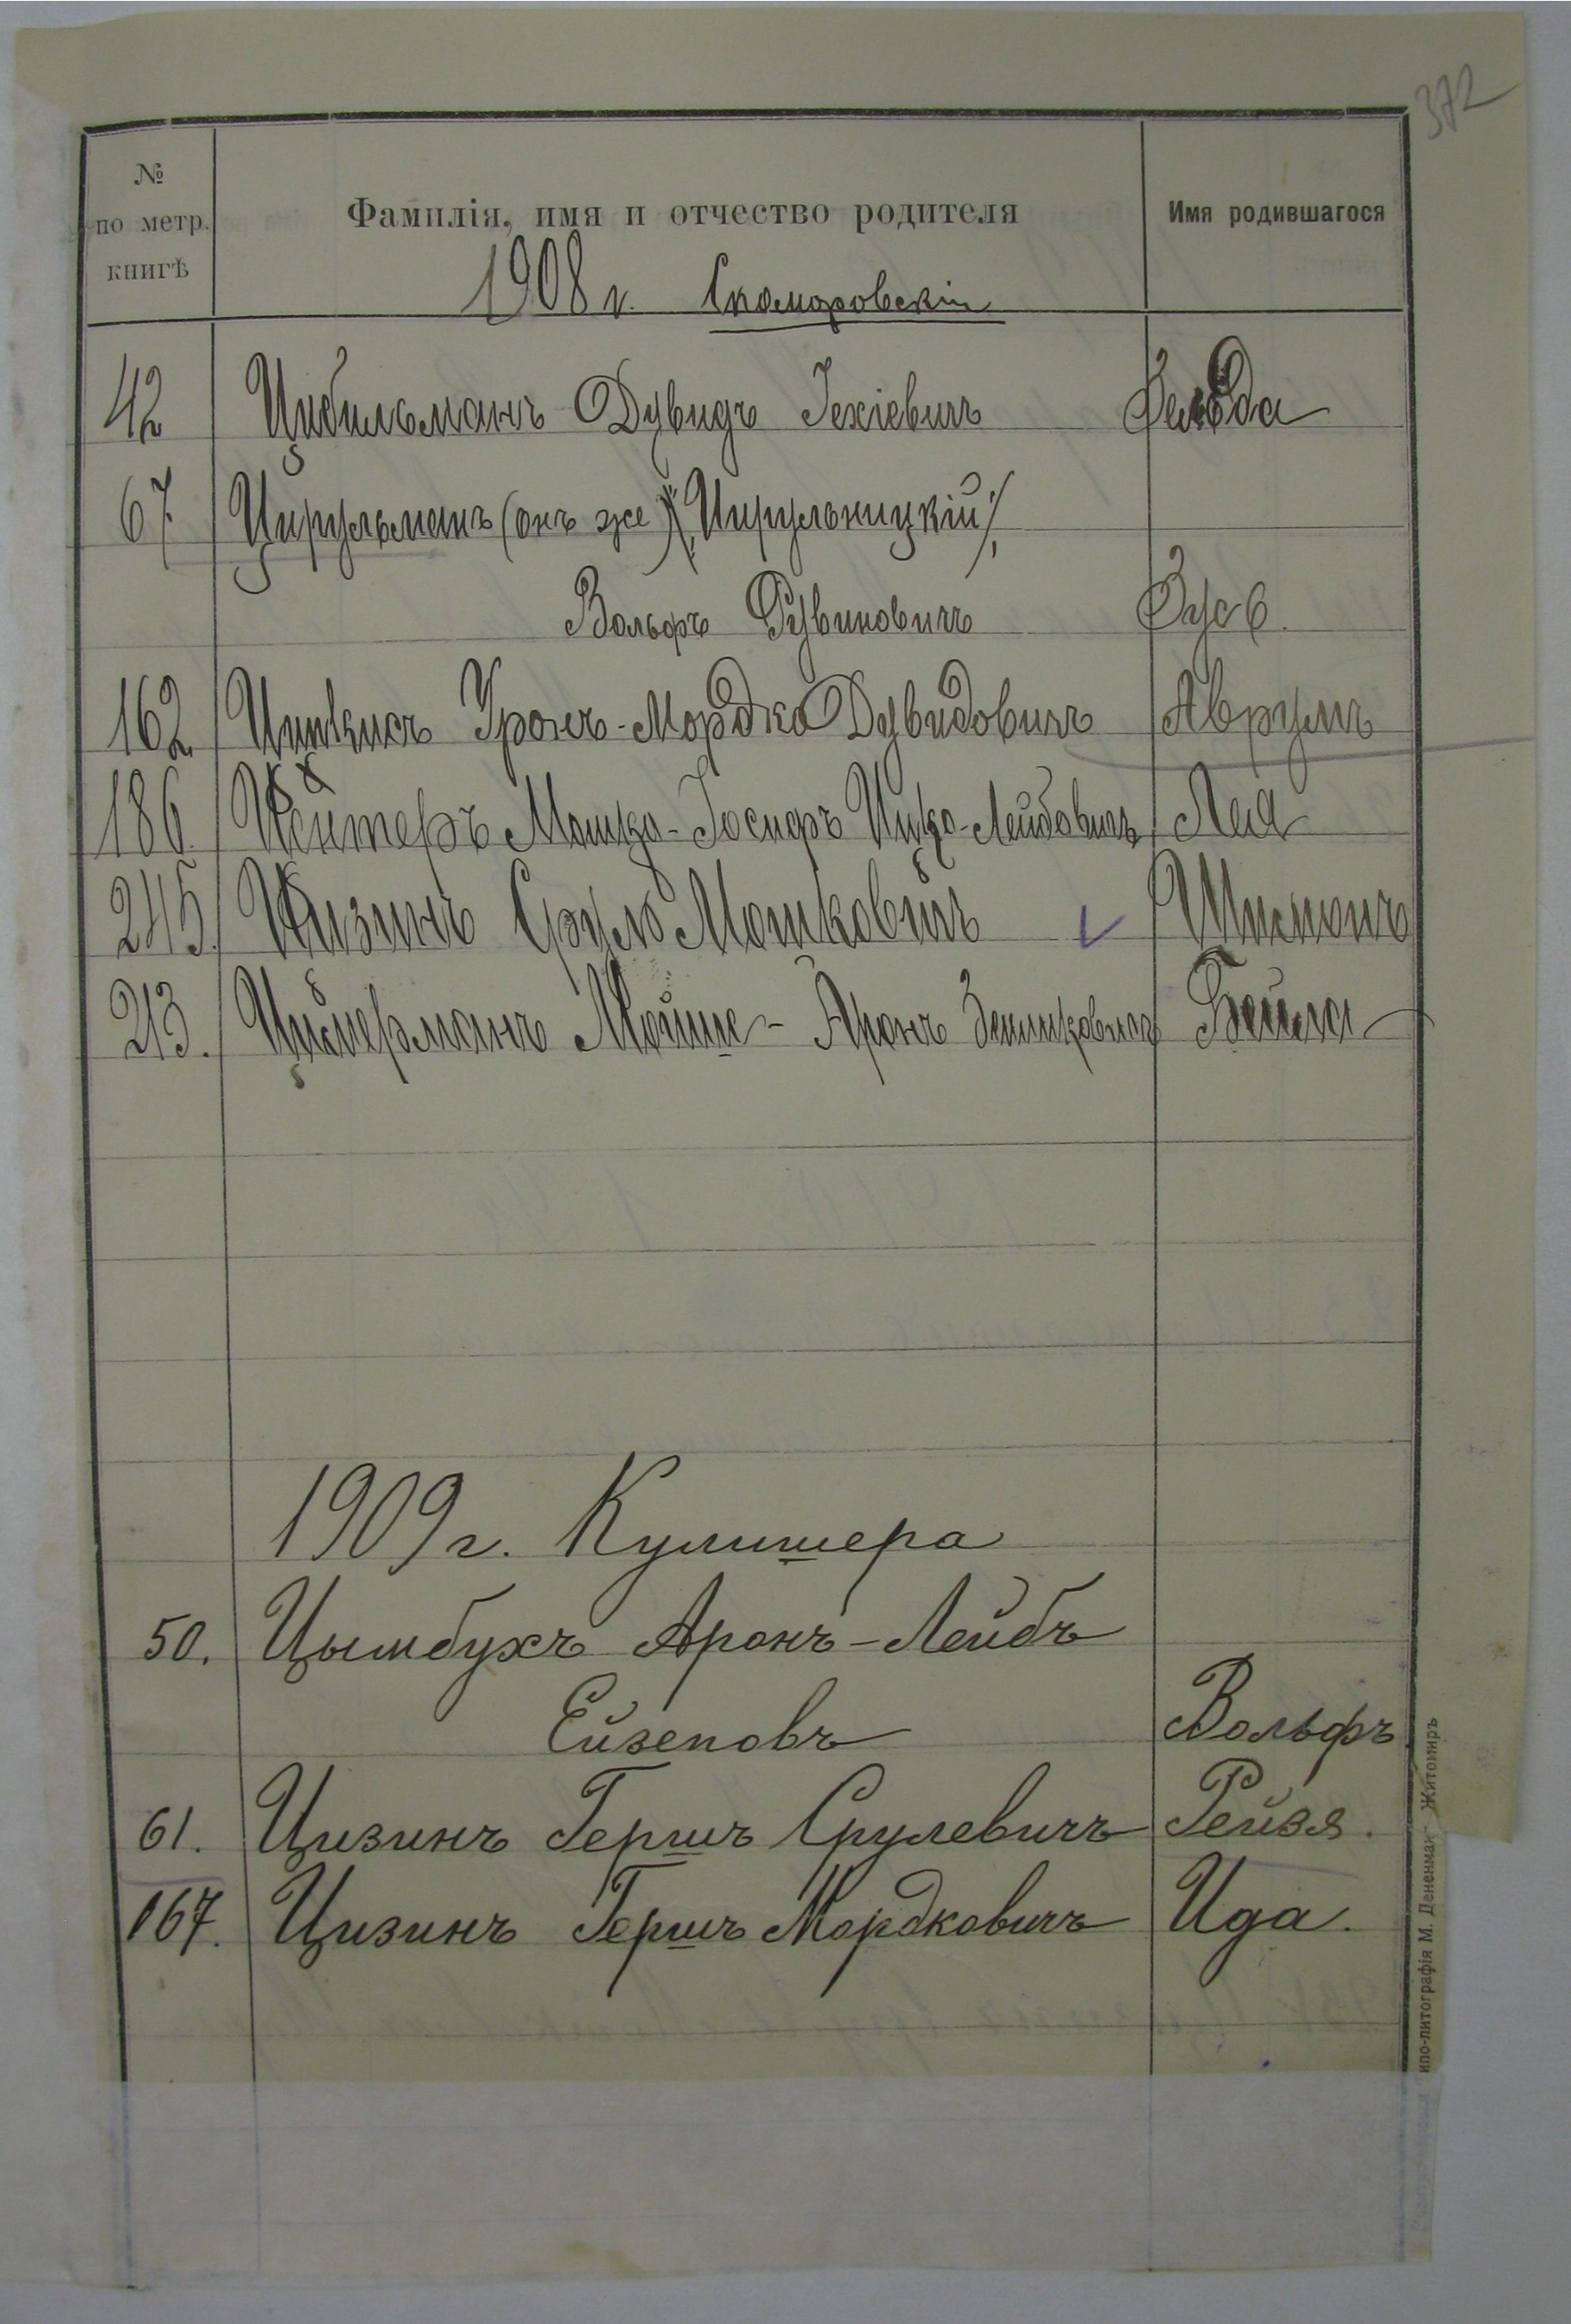 372
№
по метр.
книгѣ
Фамилія, имя и отчество родителя
Имя родившагося
1908 г. Скоморовскій
42 Цибильманъ Дувидъ Іехіевичъ Зельда
67. Цирульманъ (онъ же) („Цирульницкій”)
Вольфъ Рувиновичъ Зусь.
162 Ципкисъ Уронъ-Мордко Дувидовичъ Аврумъ
186 Центеръ Мошко-Іосифъ Ицко-Лейбовичъ Лея
245. Цизинъ Сруль Мошковичъ Шимонъ
213. Цимерманъ Мойше-Аронъ Бейла
1909 г. Кулишера
50. Цымбухъ Аронъ-Лейбъ
Ейзеповъ Вольфъ
61. Цизинъ Гершъ Срулевичъ Рейзя.
167. Цизинъ Гершъ Мордковичъ Ида.
ипо-литографія М. Дененман Житомиръ